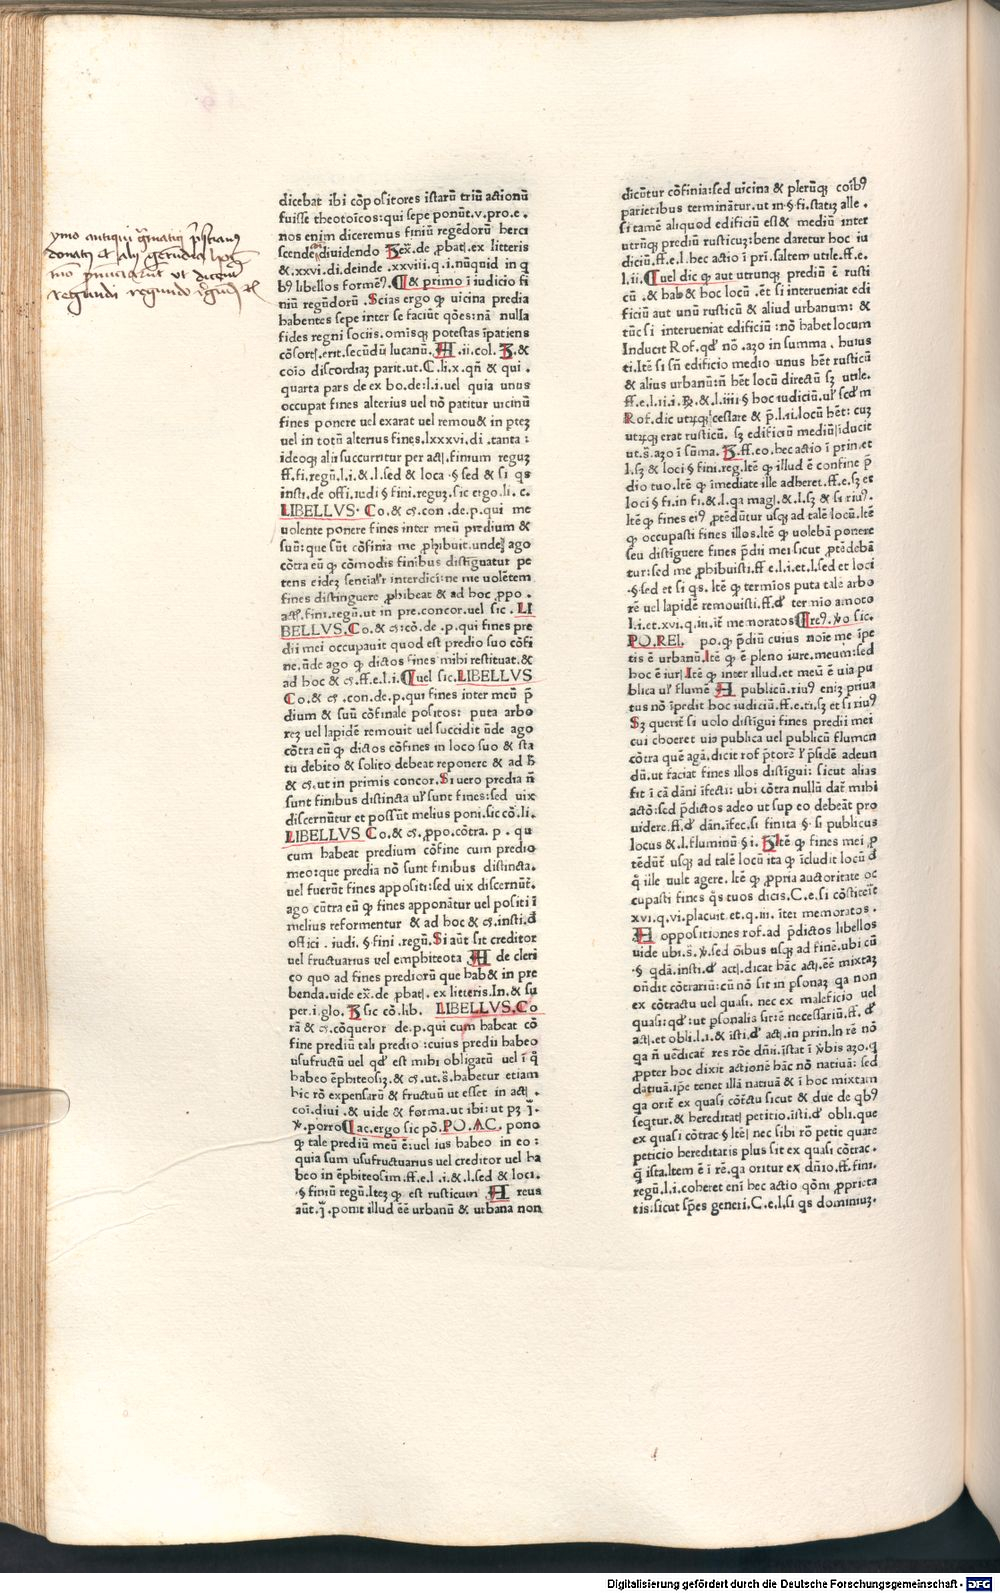 ymo antiqui
donatus et alii
ut dicerent
regundi regundo
dicebat ibi cōpositores istarū triū actionū
fuisse theotoīcos: qui sepe ponūt.v.pro.e.
nos enim diceremus finiū regēdorū herci
scende diuidendo ex̄.de ꝓbatꝭ.ex litteris
&.xxvi.di.deinde .xxviii.q.i.nūquid in q
bꝰ libellos formē?. & primo i iudicio fi
niū regūdorū .Scias ergo ꝙ uicina predia
habentes sepe inter se faciūt q̄ōes:nā nulla
fides regni sociis.omisqꝫ potestas īpatiens
cōsortꝭ.erit.secūdū lucanū. .ii.col. .&
quia discordiaꝫ parit.ut.C.li.x.qn̄ & qui .
quarta pars de ex bo.de:l.i.uel quia unus
occupat fines alterius uel nō patitur uicinū
fines ponere uel exarat uel remouet in pteꝫ
uel in totū alterius fines.lxxxvi.di .tanta :
ideoqꝫ alii succurritur per actꝭ.finium reguꝫ
ff.fi.regū.l.i.& l.sed & loca §.sed & si qs
insti.de offi.iudi § fini.reguꝫ.sic ergo.li. c.
LIBELLVS. Co.& cꝭ.con.de.p.qui me
uolente ponere fines inter meū predium &
suū:que sūt cōfinia me ꝓhibuit.unde ago
cōtra eū ꝙ comodis finibus distīguatur pe
tens eideꝫ sentialꝭr interdici:ne me uolētem
fines distinguere ꝓhibeat & ad hoc ꝓpo .
actꝭ.fini.regū.ut in pre.concor.uel sic . LI
BELLVS.Co.& cꝭ:cō.de .p.qui fines pre
dii mei occupauit quod est predio suo cōfi
ne.ūde ago ꝙ dictos fines mihi restituat.&
ad hoc & cꝭ.ff.e.l.i. uel sic.LIBELLVS
Co.& cꝭ .con.de.p.qui fines inter meū p̄
dium & suū cōfinale positos: puta arbo
reꝫ uel lapidē remouit uel succidit ūde ago
cōtra eū ꝙ dictos cōfines in loco suo & sta
tu debito & solito debeat reponere & ad ħ
& cꝭ.ut in primis concor.Si uero predia n̄
sunt finibus distincta ulꝭ sunt fines:sed uix
discernūtur et possūt melius poni.sic cō.li.
LIBELLVS Co.& cꝭ.ꝓpo.cōtra. p . qu
cum habeat predium cōfine cum predio
meo:que predia nō sunt finibus distincta.
uel fuerūt fines appositi:sed uix discernūt.
ago cūtra eū ꝙ fines apponātur uel positi ī
melius reformentur & ad hoc & cꝭ.insti.d̄
offici . iudi. § fini .regū.Si aūt sit creditor
uel fructuarius uel emphiteota de cleri
co quo ad fines prediorū que habet in pre
benda.uide ex̄.de ꝓbatꝭ. ex litteris.In.& su
per.i.glo. sic cō.lib. LIBELLVS.Co
rā & cꝭ.cōqueror de.p.qui cum habeat cō
fine prediū tali predio :cuius predii habeo
usufructū uel qd̄ est mihi obligatū uel ī q̄
habeo ēphiteosiꝫ.& cꝭ.ut.s̄.habetur etiam
hic rō expensarū & fructuū ut esset in actꝭ .
coī.diui .& uide & forma.ut ibi:ut pꝫ j̄.
℣.porro ac.ergo sic pō.PO.AC. pono
ꝙ tale prediū meū ē:uel ius habeo in eo :
quia sum usufructuarius uel creditor uel ha
beo in ēphiteosim.ff.e.l .i.& l.sed & loci.
.§ finiū regū.Iteꝫ ꝙ est rusticum reus
aūt.j̄.ponit illud eē urbanū & urbana non
dicūtur cōfinia:sed uicina & plerūqꝫ coībꝰ
parietibus terminātur.ut in § fi.statiꝫ alle .
si tamē aliquod edificiū est & mediū inter
utrūqꝫ prediū rusticuꝫ:bene daretur hoc iu
diciū.ff.e.l.hec actio ī pri.saltem utile.ff.e.
l.ii. uel dic ꝙ aut utrunqꝫ prediū ē rusti
cū .& habet hoc locū .et si interueniat edi
ficiū aut unū rusticū & aliud urbanum: &
tūc si interueniat edificiū :nō habet locum
Inducit Rof.qd̄ nō .azo in summa . huius
ti.Itē si sn̄ edificio medio unus hēt rusticū
& alius urbanū:n̄ hēt locū directū sꝫ utile.
ff.e.l.ii.i. .& .l.iiii § hoc iudiciū.ulꝭ scd̄m
Rof.dic utrꝫqꝫ cessare & p̄.l.ii.locū hēt: cuꝫ
utrꝫqꝫ erat rusticū. sꝫ edificiū mediū iducit
ut.s̄.azo ī sūma. .ff.eo.hec actio ī prin.et
l.sꝫ & loci § fini.reg.Itē ꝙ illud ē confine p̄
dio tuo.Itē ꝙ īmediate ille adheret.ff.e.sꝫ et
loci § fi.in fi.& .l.qa magꝭ.& .l.sꝫ & si riuꝰ.
Itē ꝙ fines eiꝰ ꝓtēdūtur usqꝫ ad talē locū.Itē
ꝙ occupasti fines illos.Itē ꝙ uolebā ponere
seu distiguere fines p̄dii mei sicut ꝓtēdebā
tur:sed me ꝓhibuisti.ff e.l.i.et.l.sed et loci
.§.sed et si qs. Itē ꝙ termīos puta tale arbo
rē uel lapidē remouisti.ff.d̄ termīo amoto
l.i.et.xvi.q.iii.it̄ memoratos reꝰ. ℣o sic.
PO.REI. po.ꝙ p̄diū cuius noīe me īpe
tis ē urbanū.Itē ꝙ ē pleno iure.meum:sed
hoc ē iurꝭ.Itē ꝙ inter illud.et meū ē uia pu
blica ulꝭ flumē publicū.riuꝰ eniꝫ priua
tus nō īpedit hoc iudiciū.ff.e.ti.sꝫ et si riuꝰ
Sꝫ querit̄ si uolo distīgui fines predii mei
cui choeret uia publica uel publicū flumen
cōtra quē agā.dicit rof p̄torē ulꝭ p̄sidē adeun
dū.ut faciat fines illos distīgui: sicut alias
fit ī cā dāni īfecti: ubi cōtra nullū dat̄ mihi
actō:sed p̄dictos adeo ut sup eo debeāt pro
uidere.ff.d̄ dān.ifec.si finita §. si publicus
locus & .l.fluminū § i. Itē ꝙ fines mei ꝓ
tēdūt̄ usqꝫ ad talē locū ita ꝙ īcludit locū d̄
q̄ ille uult agere. Itē ꝙ ꝓpria auctoritate oc
cupasti fines q̄s tuos dicis.C.e.si cōstiterit
xvi.q.vi.placuit.et.q.iii.īter memoratos .
oppositiones rof.ad p̄dictos libellos
uide ubi.s̄.℣.sed oībus usqꝫ ad finē.ubi cū
.§ qdā.insti.d̄ actꝭ.dicat hāc actꝭ.eē mixtaꝫ
on̄dit cōtrariū:cū nō sit in psonaꝫ qa non
ex cōtractu uel quasi. nec ex maleficio uel
quasi:qd̄:ut psonalis sit:ē necessariū.ff. d̄
actꝭ.et obli.l.i.& īsti.d̄ actꝭ.in prin.In rē nō
qa n̄ uēdicat̄ res rōe dn̄ii.istat ī ℣bis azo.q.
ꝓpter hoc dixit actionē hāc nō natiuā: sed
datiuā.ipē tenet illā natiuā & ī hoc mixtam
qa orit̄ ex quasi cōtctu sicut & due de qbꝰ
seqtur.& hereditatꝭ petitio.īsti.d̄ obli.que
ex quasi cōtrac § Itē nec sibi rō petit quare
peticio hereditatis plus sit ex quasi cōtrac.
q̄ ista.Item ē ī rē.qa oritur ex dn̄io.ff.fini.
regū.l.i.coheret eni hec actio qōni ꝓprieta
tis:sicut sp̄es generi.C.e.l.si qs dominiuꝫ.
Digitalisierung gefördert durch die Deutsche Forschungsgemeinschaft - DFG